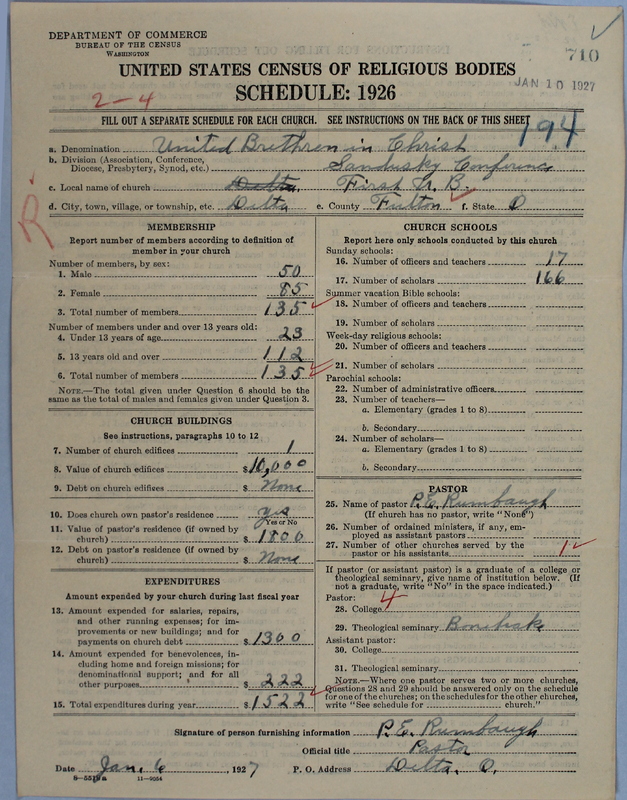 DEPARTMENT OF COMMERCE
BUREAU OF THE CENSUS
WASHINGTON
710
UNITED STATES CENSUS OF RELIGIOUS BODIES
JAN 10 1927
SCHEDULE: 1926
2-4
FILL OUT A SEPARATE SCHEDULE FOR EACH CHURCH. SEE INSTRUCTIONS ON THE BACK OF THIS SHEET
194
a. Denomination United Brethren in Christ
b. Division (Association, Conference, Diocese, Presbytery, Synod, etc.) Sandusky Conference
c. Local name of church Delta First U. B.
d. City, town, village, or township, etc. Delta e. County Fulton f. State O
R
MEMBERSHIP
Report number of members according to definition of
member in your church
Number of members, by sex:
1. Male 50
2. Female 85
3. Total number of members 135
Number of members under and over 13 years old:
4. Under 13 years of age 23
5. 13 years old and over 112
6. Total number of members 135
NOTE.—The total given under Question 6 should be the
same as the total of males and females given under Question 3.
CHURCH BUILDINGS
See instructions, paragraphs 10 to 12
7. Number of church edifices 1
8. Value of church edifices $10,000
9. Debt on church edifices $ None
10. Does church own pastor's residence yes
Yes or No
11. Value of pastor's residence (if owned by
church) $ 1800
12. Debt on pastor's residence (if owned by
church) $ None
EXPENDITURES
Amount expended by your church during last fiscal year
13. Amount expended for salaries, repairs,
and other running expenses; for im-
provements or new buildings; and for
payments on church debt $1300
14. Amount expended for benevolences, in-
cluding home and foreign missions; for
denominational support; and for all
other purposes $ 222
15. Total expenditures during year $1522
CHURCH SCHOOLS
Report here only schools conducted by this church
Sunday schools:
16. Number of officers and teachers 17
17. Number of scholars 166
Summer vacation Bible schools:
18. Number of officers and teachers
19. Number of scholars
Week-day religious schools:
20. Number of officers and teachers
21. Number of scholars
Parochial schools:
22. Number of administrative officers
23. Number of teachers—
a. Elementary (grades 1 to 8)
b. Secondary
24. Number of scholars—
a. Elementary (grades 1 to 8)
b. Secondary
PASTOR
25. Name of pastor P. E. Rumbaugh
(If church has no pastor, write "None")
26. Number of ordained ministers, if any, em-
ployed as assistant pastors
27. Number of other churches served by the
pastor or his assistants 1
If pastor (or assistant pastor) is a graduate of a college or
theological seminary, give name of institution below. (If
not a graduate, write "No" in the space indicated.)
Pastor:
28. College 4
29. Theological seminary Bonebrake
Assistant pastor:
30. College
31. Theological seminary
NOTE.—Where one pastor serves two or more churches,
Questions 28 and 29 should be answered only on the schedule
for one of the churches; on the schedules for the other churches,
write "See schedule for ______ church."
Signature of person furnishing information P. E. Rumbaugh
Official title Pastor
Date Jan. 6, 1927 P. O. Address Delta, O.
8—5519a 11—9054